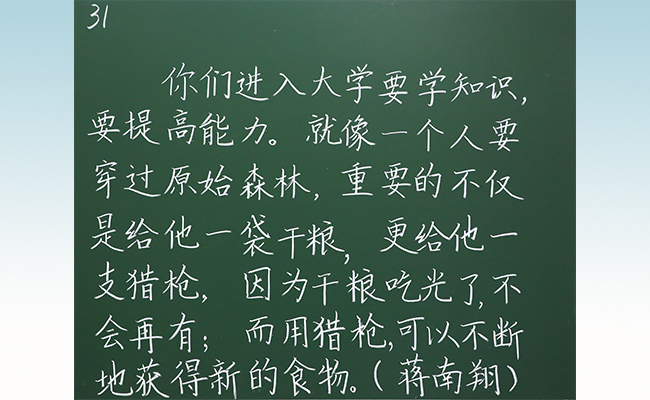 31
你们进入大学要学知识,
要提高能力。就像一个人要
穿过原始森林，重要的不仅
是给他一袋干粮，更给他一
支猎枪，因为干粮吃光了,不
会再有；而用猎枪,可以不断
地获得新的食物。(蒋南翔)